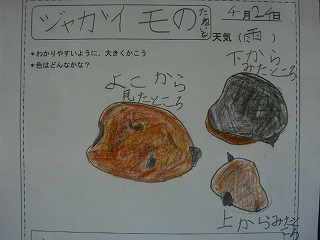 ジャガイモのたねを
4月24日
天気（雨）
*わかりやすいように、大きくかこう
*色はどんなかな？
よこから
見たところ
下から
みたところ
上からみたところ